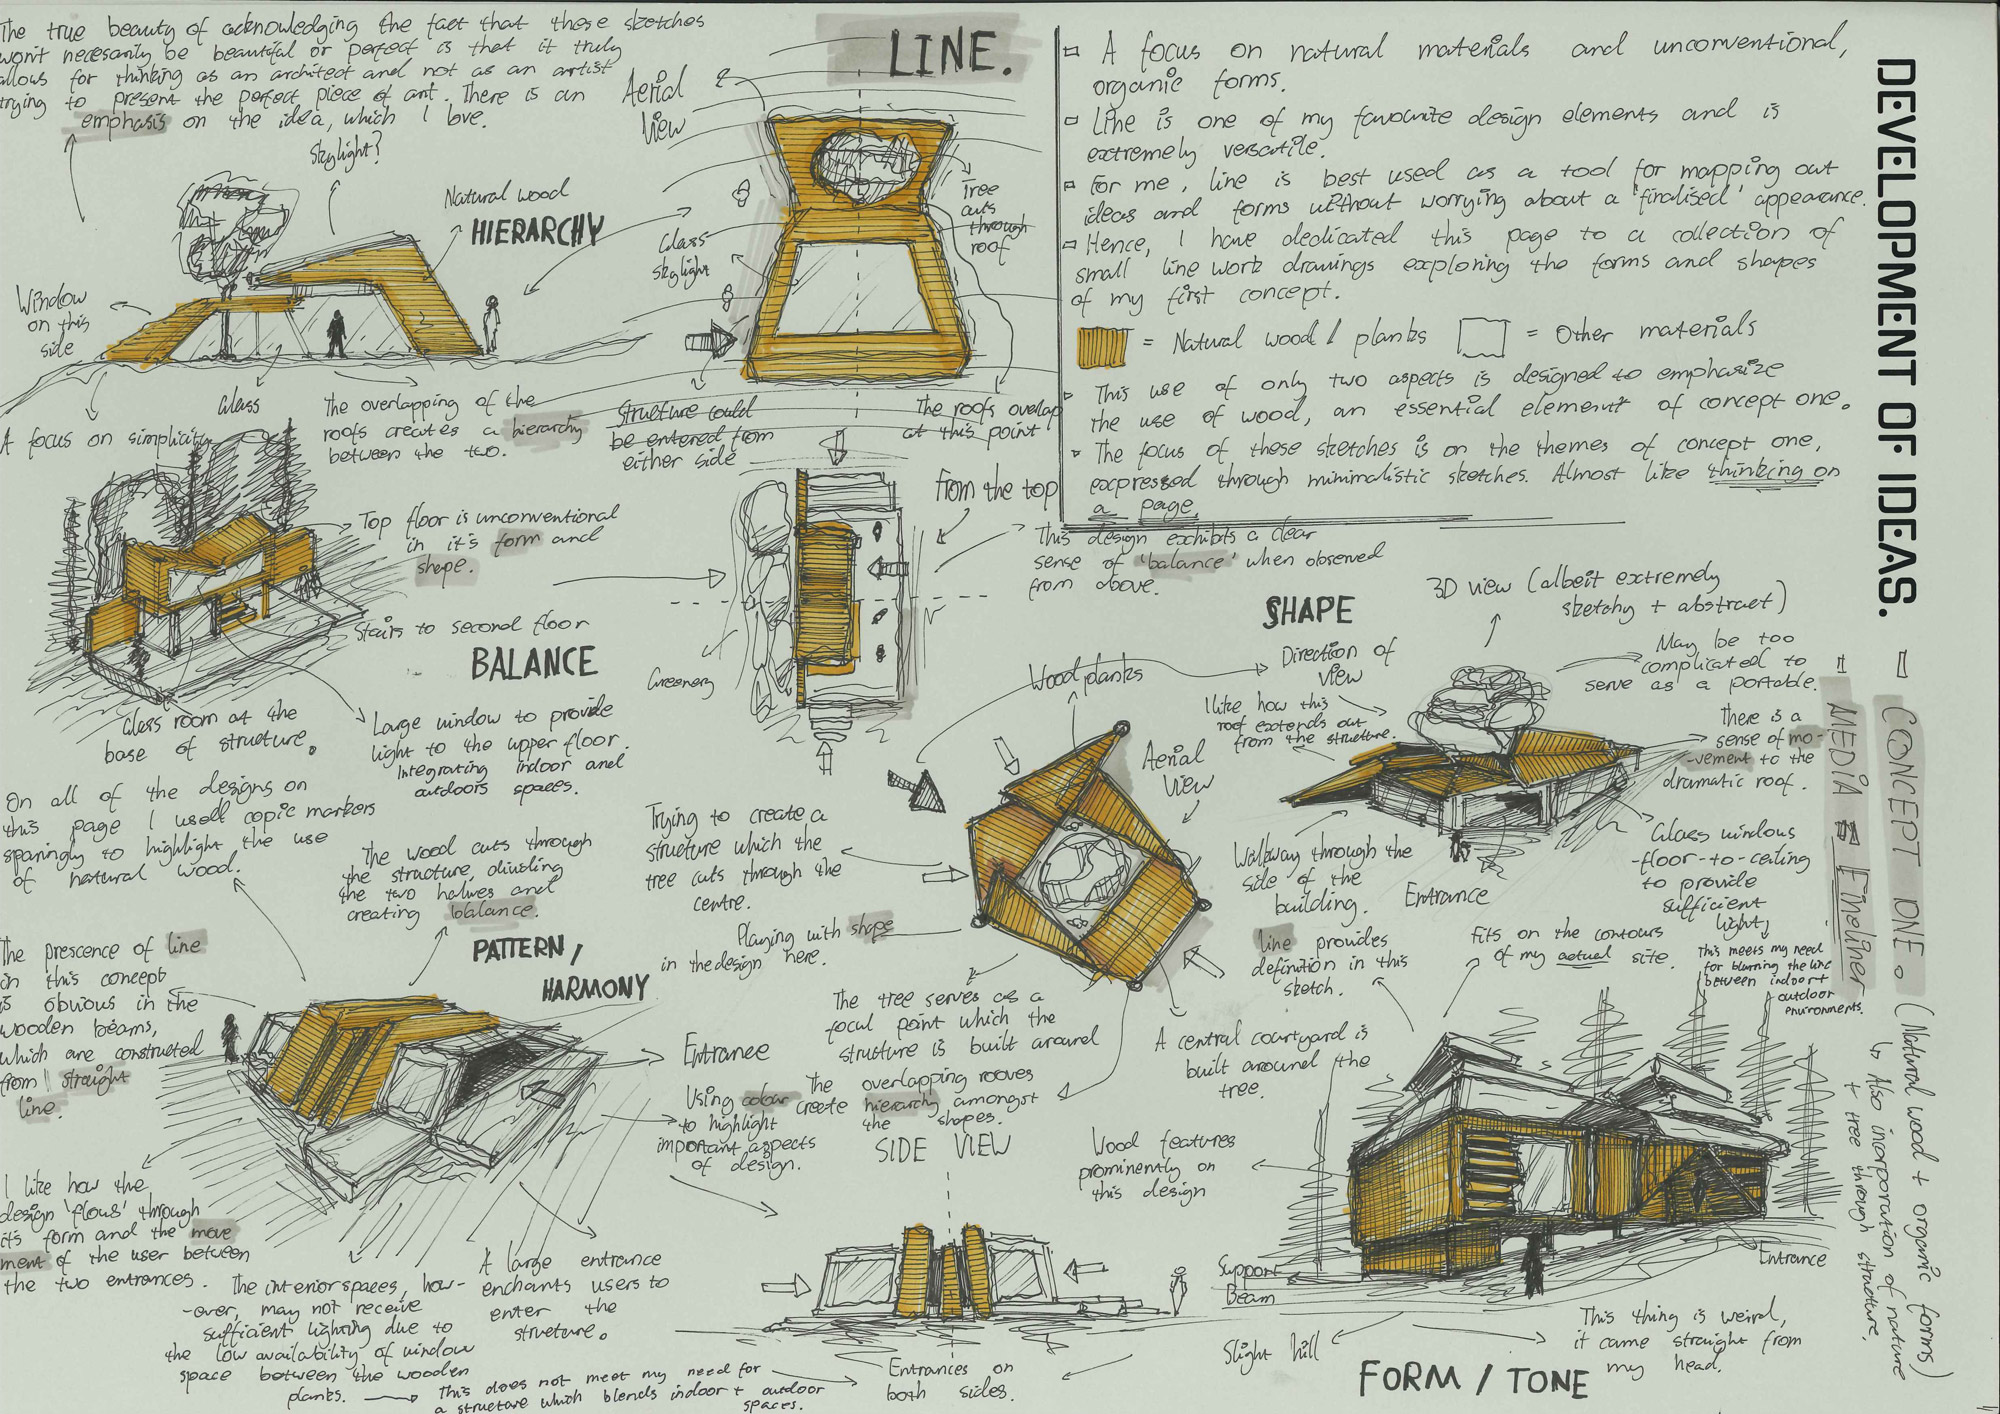 The true beauty of acknowledging the fact that these sketches
won't necesarily be beautiful or perfect is that it truly
allows for thinking as an architect and not as an artist
trying to present the perfect piece of art. There is an
emphasis on the idea, which I love.
Skylight?
Natural wood
HIERARCHY
Window
on this
side
Glass
A focus on simplicity
The overlapping of the
roofs creates a hierarchy
between the two.
LINE.
Aerial
View
Tree
cuts
through
roof
Glass
skylight
Structure could
be entered from
either side
The roofs overlap
at this point
A focus on natural materials and unconventional,
organic forms.
Line is one of my favourite design elements and is
extremely versatile.
For me, line is best used as a tool for mapping out
ideas and forms without worrying about a 'finalised' appearance.
Hence, I have dedicated this page to a collection of
small line work drawings exploring the forms and shapes
of my first concept.
= Natural wood / planks = Other materials
This use of only two aspects is designed to emphasize
the use of wood, an essential element of concept one.
The focus of these sketches is on the themes of concept one,
expressed through minimalistic sketches. Almost like thinking on
a page.
DEVELOPMENT OF IDEAS.
CONCEPT ONE. (Natural wood + organic forms)
Also incorporation of nature
+ tree through structure.
MEDIA = Fineliner
Top floor is unconventional
in it's form and
shape.
Stairs to second floor
BALANCE
Glass room at the
base of structure.
Large window to provide
light to the upper floor.
Integrating indoor and
outdoors spaces.
From the top
This design exhibits a clear
sense of 'balance' when observed
from above.
Greenery
SHAPE
3D view (albeit extremely
sketchy + abstract)
Direction of
view
May be too
complicated to
serve as a portable.
I like how this
roof extends out
from the structure.
There is a
sense of mo-
-vement to the
dramatic roof.
Wood planks
Aerial
View
Trying to create a
structure which the
tree cuts through the
centre.
Playing with shape
in the design here.
The tree serves as a
focal point which the
structure is built around
A central courtyard is
built around the
tree.
The overlapping rooves
create hierarchy amongst
the shapes.
Walkway through the
side of the
building.
Entrance
Glass windows
-floor-to-ceiling
to provide
sufficient
light
This meets my need
for blurring the line
between indoor +
outdoor
environments.
line provides
definition in this
sketch.
Fits on the contours
of my actual site.
On all of the designs on
this page I used copic markers
sparingly to highlight the use
of natural wood.
The wood cuts through
the structure, dividing
the two halves and
creating balance.
PATTERN /
HARMONY
The prescence of line
in this concept
is obvious in the
wooden beams,
which are constructed
from straight
line.
Entrance
Using colour
to highlight
important aspects
of design.
I like how the
design 'flows' through
it's form and the move
ment of the user between
the two entrances.
The interior spaces, how-
-over, may not receive
sufficient lighting due to
the low availability of window
space between the wooden
planks.
This does not meet my need for
a structure which blends indoor + outdoor
spaces.
A large entrance
enchants users to
enter the
structure.
SIDE VIEW
Entrances on
both sides.
Wood features
prominently on
this design
Support
Beam
Slight hill
Entrance
This thing is weird,
it came straight from
my head.
FORM / TONE